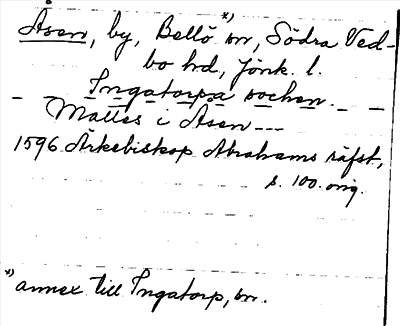 Åsen, by, Bellö *) sn, Södra Ved-
bo hd, Jönk. l.
_ _ Ingatorpa sochen. _ _
Matles i Åsen ---
1596 Ärkebiskop Abrahams räfst,
s. 100. orig.
*) annex till Ingatorp, sn.